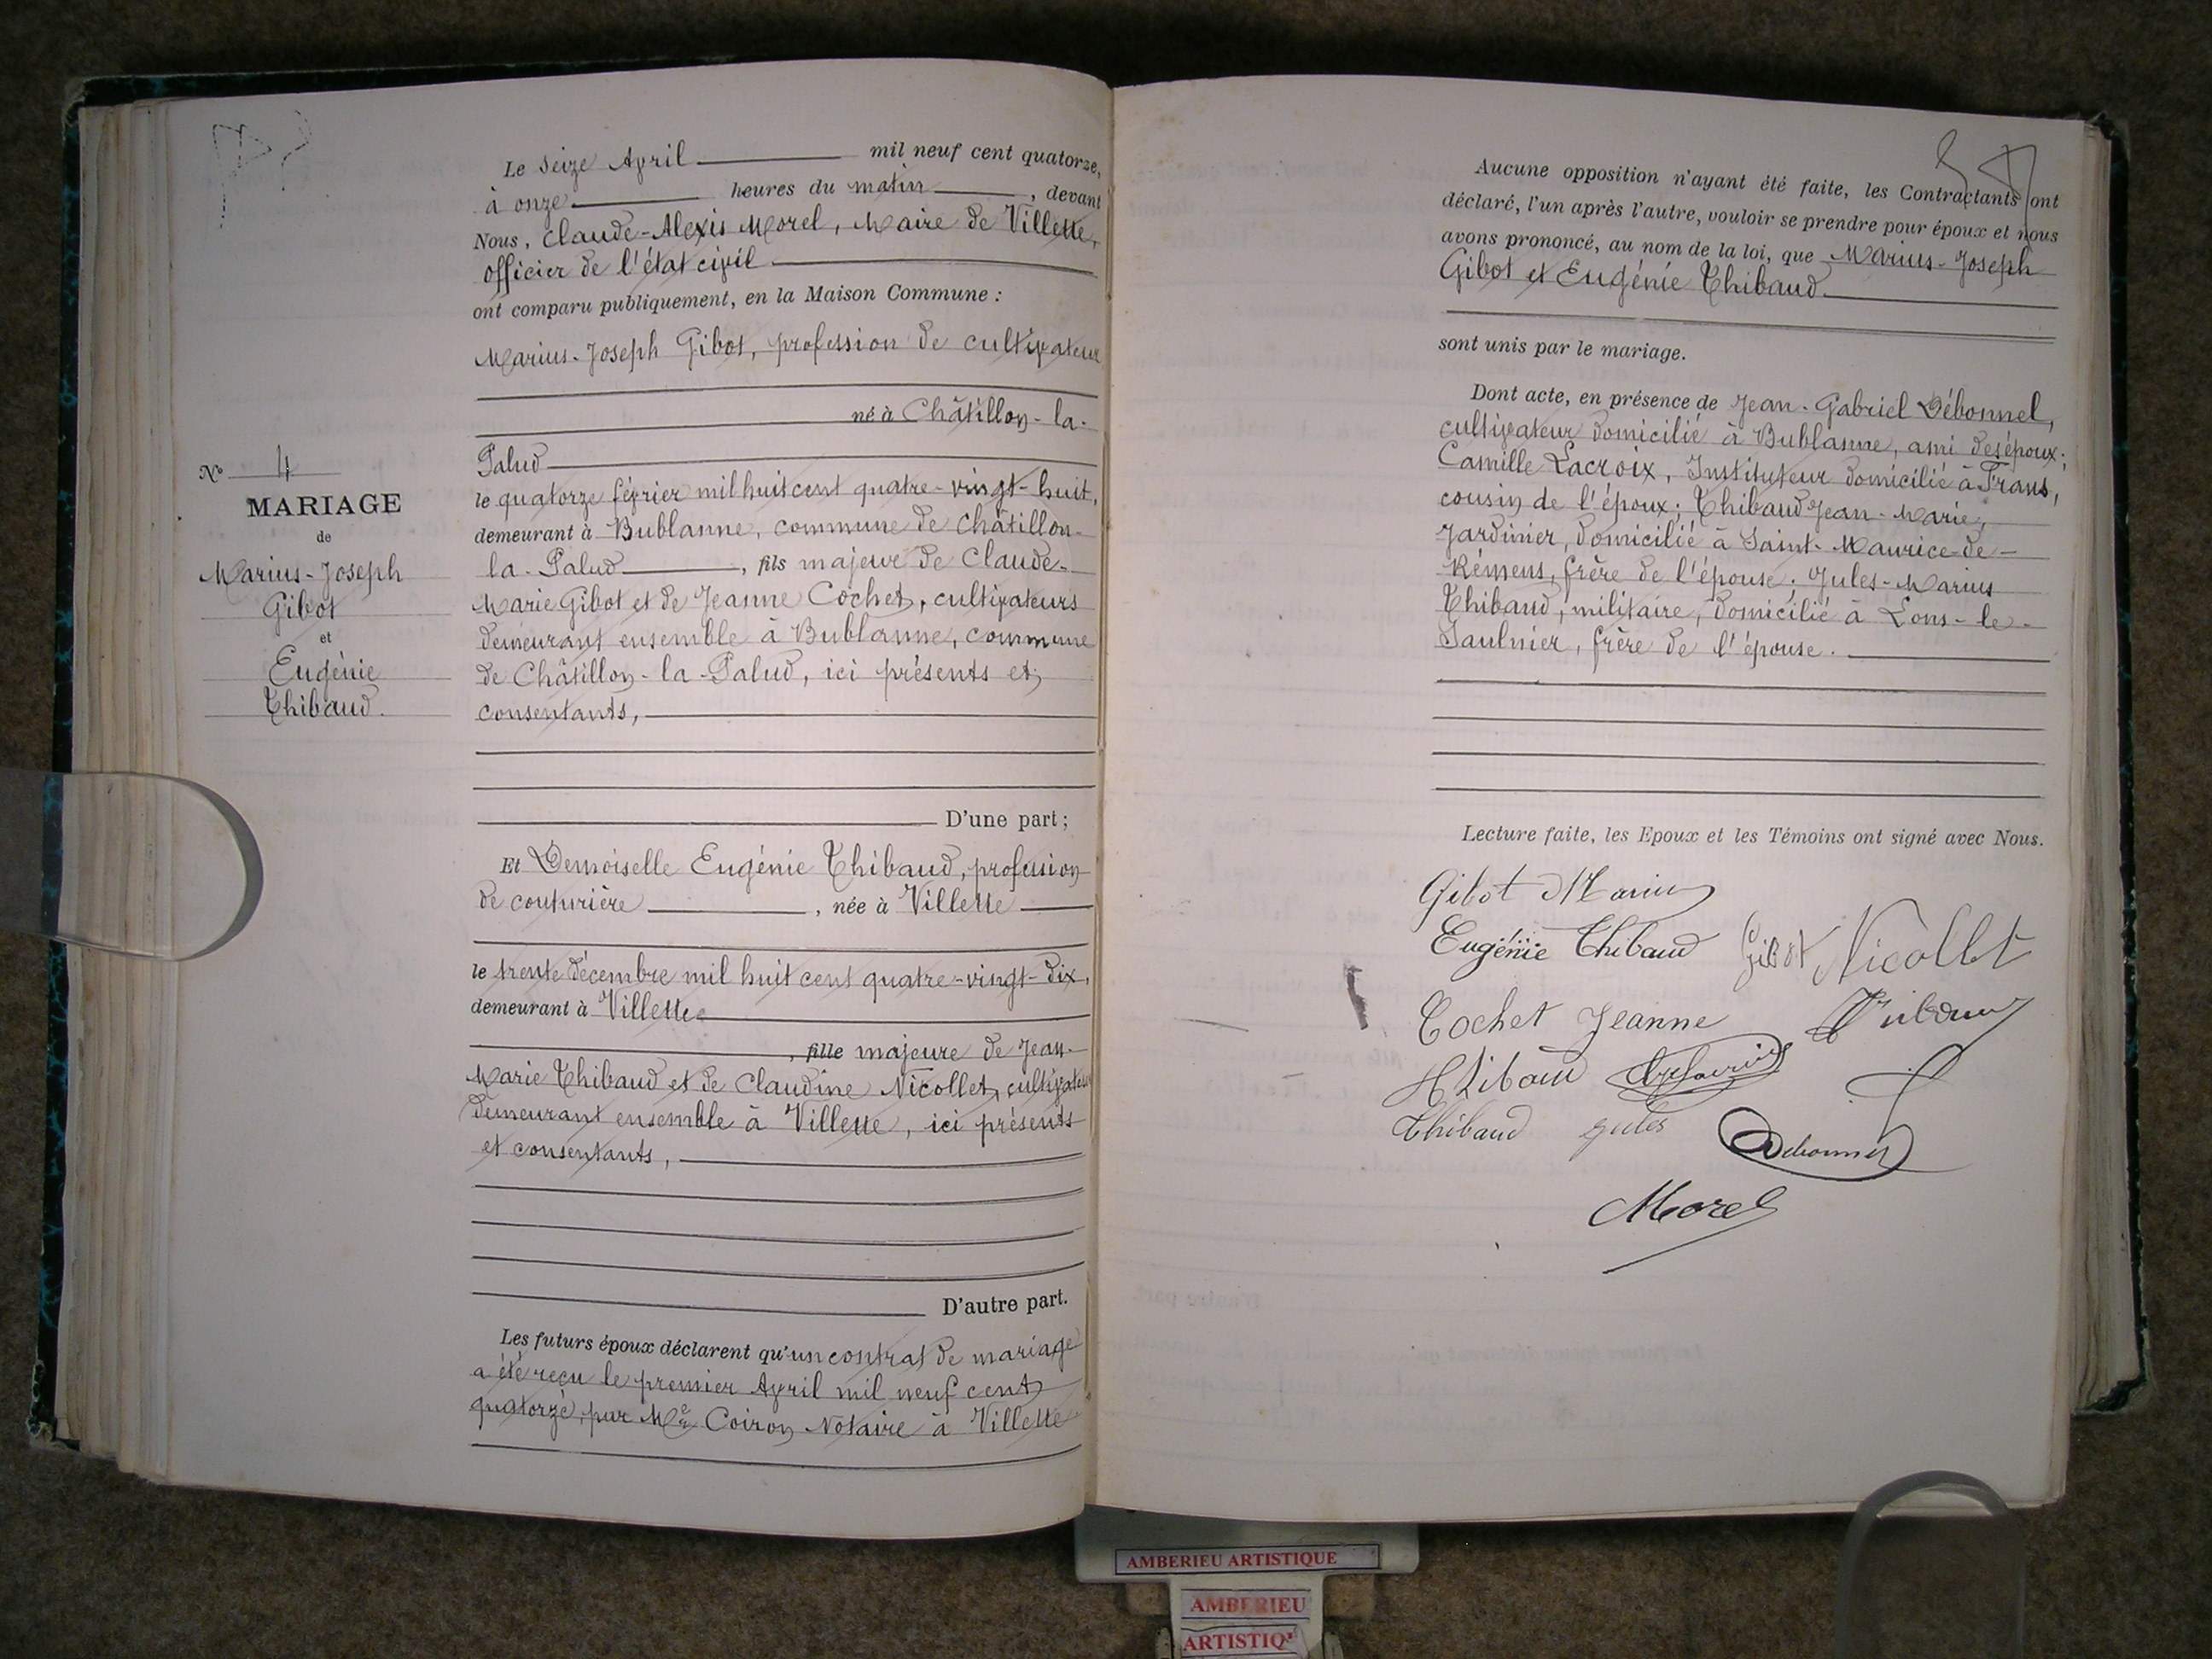 Le Seize Avril mil neuf cent quatorze,
à onze heures du matin, devant
Nous, Claude-Alexis Morel, Maire de Villette,
officier de l'état civil
ont comparu publiquement, en la Maison Commune :
Marius-Joseph Gibot, profession de cultivateur
né à Châtillon-la-
Palud
le quatorze février mil huit cent quatre-vingt-huit,
demeurant à Bublanne, commune de Châtillon-
la-Palud, fils majeur de Claude-
Marie Gibot et de Jeanne Cochet, cultivateurs
demeurant ensemble à Bublanne, commune
de Châtillon-la-Palud, ici présents et
consentants,
D'une part ;
Et Demoiselle Eugénie Thibaud, profession
de couturière, née à Villette
le trente décembre mil huit cent quatre-vingt-dix,
demeurant à Villette
, fille majeure de Jean-
Marie Thibaud et de Claudine Nicollet, cultivateurs
demeurant ensemble à Villette, ici présents
et consentants,
D'autre part.
Les futurs époux déclarent qu'un contrat de mariage
a été reçu le premier Avril mil neuf cent
quatorze, par Me Coiron Notaire à Villette
No 4
MARIAGE
de
Marius-Joseph
Gibot
et
Eugénie
Thibaud.
Aucune opposition n'ayant été faite, les Contractants ont
déclaré, l'un après l'autre, vouloir se prendre pour époux et nous
avons prononcé, au nom de la loi, que Marius-Joseph
Gibot et Eugénie Thibaud
sont unis par le mariage.
Dont acte, en présence de Jean-Gabriel Débonnel,
cultivateur domicilié à Bublanne, ami des époux ;
Camille Lacroix, Instituteur domicilié à Frans,
cousin de l'époux ; Thibaud Jean-Marie,
Jardinier, domicilié à Saint-Maurice-de-
Rémens, frère de l'épouse ; Jules-Marius
Thibaud, militaire, domicilié à Lons-le-
Saulnier, frère de l'épouse.
Lecture faite, les Epoux et les Témoins ont signé avec Nous.
Gibot Marius
Eugénie Thibaud Gibot Nicollet
Cochet Jeanne
Thibaud Jules Debonnel
Morel
AMBERIEU ARTISTIQUE
AMBERIEU
ARTISTIQ